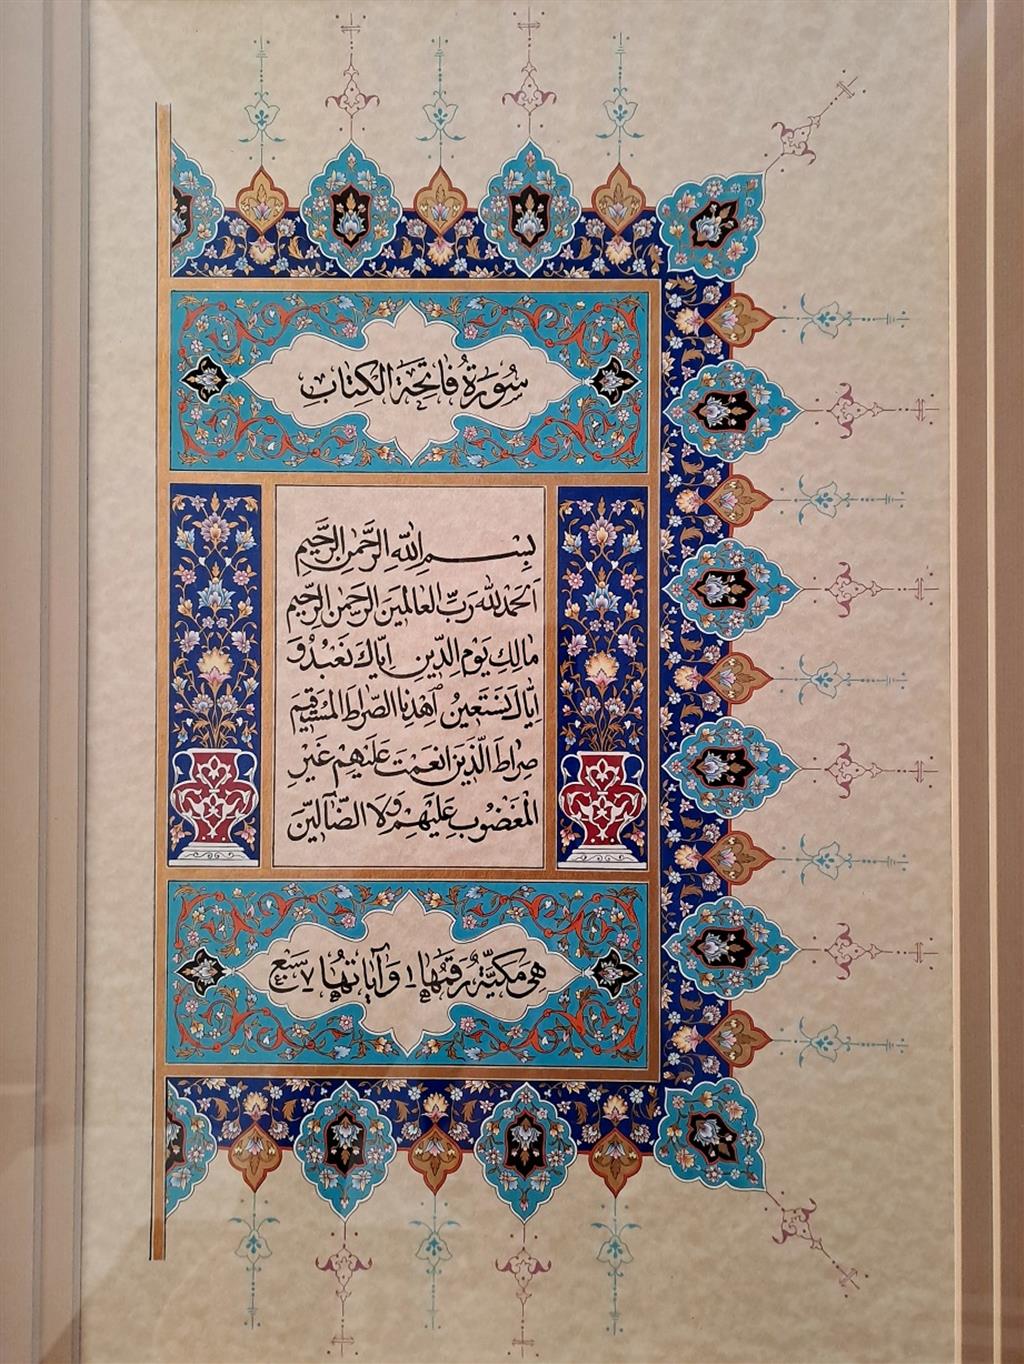 سُورَةُ فَاتِحَةِ الْكِتَابِ
بِسْمِ اللّٰهِ الرَّحْمٰنِ الرَّحِيمِ
اَلْحَمْدُ لِلّٰهِ رَبِّ الْعَالَمِينَ الرَّحْمٰنِ الرَّحِيمِ
مَالِكِ يَوْمِ الدِّينِ اِيَّاكَ نَعْبُدُ وَ
اِيَّاكَ نَسْتَعِينُ اِهْدِنَا الصِّرَاطَ الْمُسْتَقِيمَ
صِرَاطَ الَّذِينَ اَنْعَمْتَ عَلَيْهِمْ غَيْرِ
الْمَغْضُوبِ عَلَيْهِمْ وَلَا الضَّآلِّينَ
هِيَ مَكِّيَّةٌ رَقَمُهَا ١ وَآيَاتُهَا ٧ سَبْع